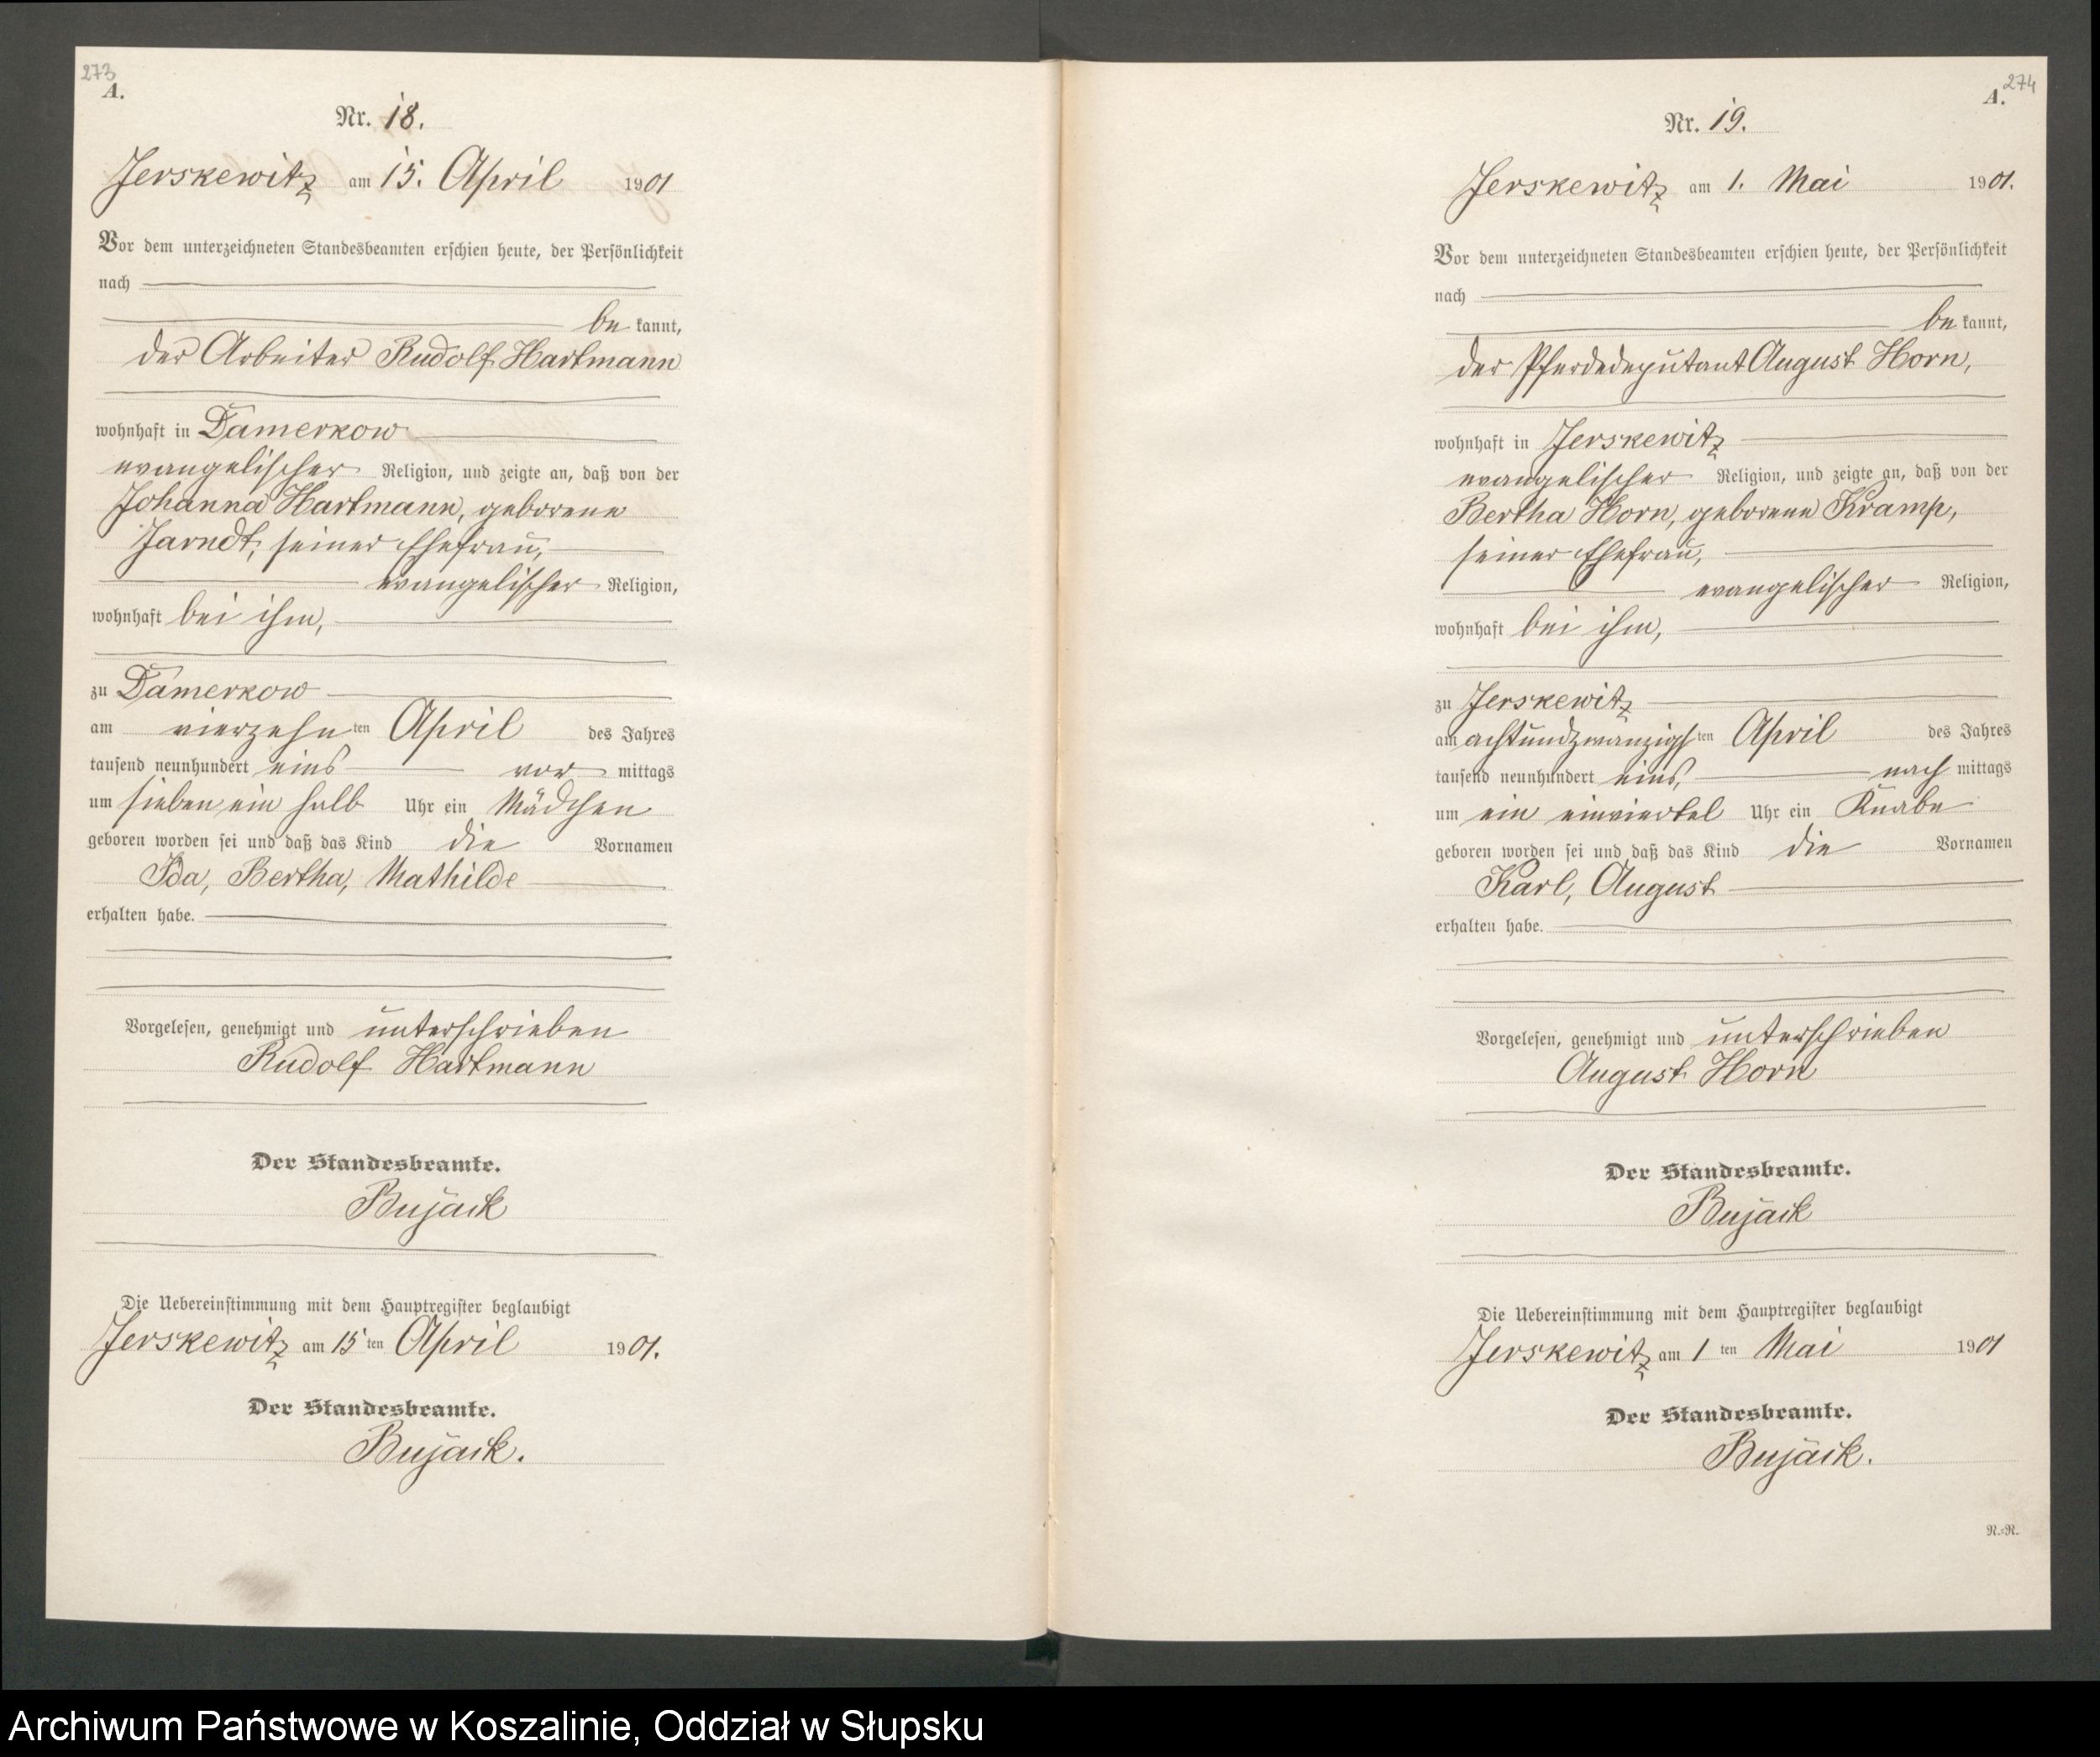 273
A.
Nr. 18.
Jerskewitz am 15. April 1901
Vor dem unterzeichneten Standesbeamten erschien heute, der Persönlichkeit
nach
be kannt,
der Arbeiter Rudolf Hartmann
wohnhaft in Damerkow
evangelischer Religion, und zeigte an, daß von der
Johanna Hartmann, geborene
Jarndt, seiner Ehefrau,
evangelischer Religion,
wohnhaft bei ihm,
zu Damerkow
am vierzehn ten April des Jahres
tausend neunhundert eins vor mittags
um sieben ein halb Uhr ein Mädchen
geboren worden sei und daß das Kind die Vornamen
Ida, Bertha, Mathilde
erhalten habe.
Vorgelesen, genehmigt und unterschrieben
Rudolf Hartmann
Der Standesbeamte.
Bujack
Die Uebereinstimmung mit dem Hauptregister beglaubigt
Jerskewitz am 15 ten April 1901.
Der Standesbeamte.
Bujack.
274
A.
Nr. 19.
Jerskewitz am 1. Mai 1901.
Vor dem unterzeichneten Standesbeamten erschien heute, der Persönlichkeit
nach
be kannt,
der Pferdedeputant August Horn,
wohnhaft in Jerskewitz
evangelischer Religion, und zeigte an, daß von der
Bertha Horn, geborene Kramp,
seiner Ehefrau,
evangelischer Religion,
wohnhaft bei ihm,
zu Jerskewitz
am achtundzwanzigs ten April des Jahres
tausend neunhundert eins, nach mittags
um ein einviertel Uhr ein Knabe
geboren worden sei und daß das Kind die Vornamen
Karl, August
erhalten habe.
Vorgelesen, genehmigt und unterschrieben
August Horn
Der Standesbeamte.
Bujack
Die Uebereinstimmung mit dem Hauptregister beglaubigt
Jerskewitz am 1 ten Mai 1901
Der Standesbeamte.
Bujack.
R.=R.
Archiwum Państwowe w Koszalinie, Oddział w Słupsku